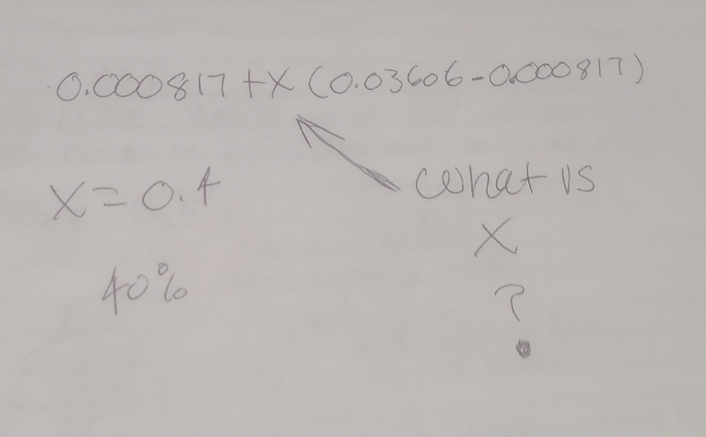 0.000817+X(0.03606-0.000817)
X=0.4
40%
What is
X
?